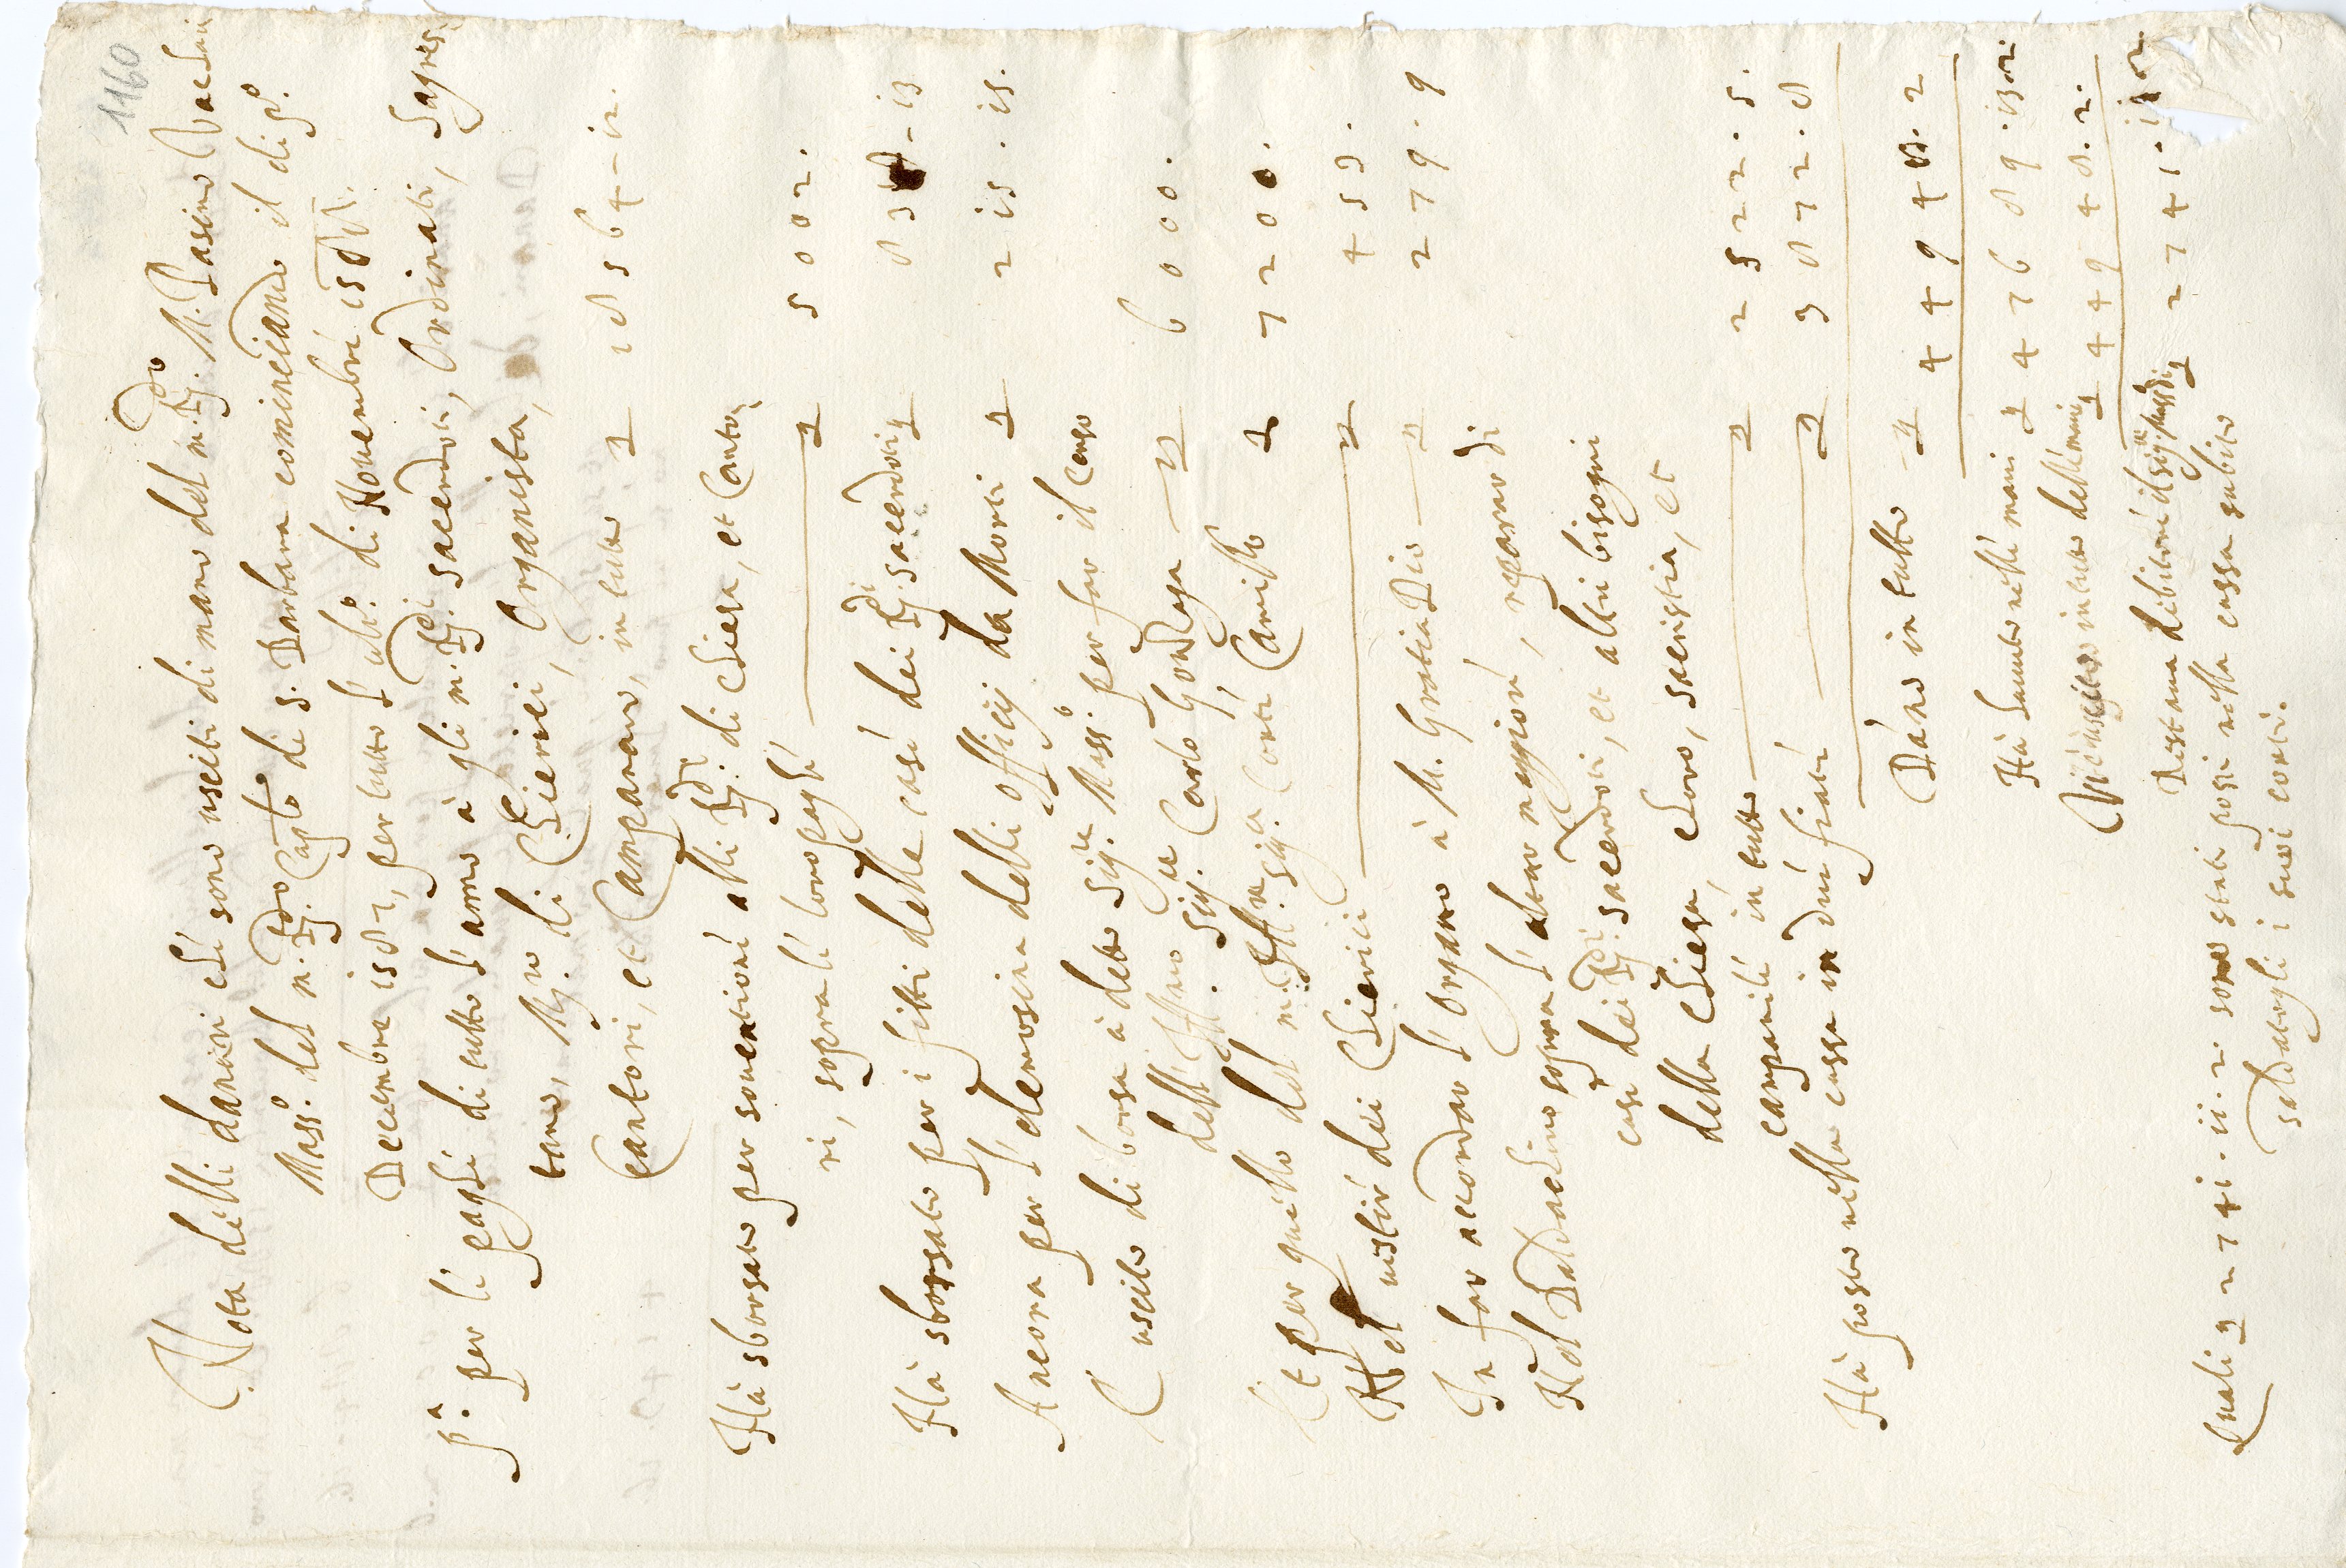 1160
Nota delli danari chè sono usciti di mano del m. Rdo. M. Pasino Bachin
Massro. del m. Rdo Caplo di S. Barbara cominciando il di po.
Decembre 1581, per tutto l'ulto. di Novembre 1582.
pa. per le paghe di tutto l'anno à gli m. Rdi. sacerdoti, Ordinati, Sagres
tano, Mro. di Chierici, Organista,
Cantori, et Campanaro, in tutto 18564-12.
Hà sborsato per souentioni alli Rdi. di Chiesa, et Canto
ri, sopra le loro paghe, 5002.
Hà sborsato per i fitti delle case dei Rdi. sacerdoti
Ancora per l'elemosina delli officij da Morti 215.15.
È uscito di borsa à detto Sigr. Masso. per far il Censo
dell' Illmo. Sigr. Carlo Gonzaga 6000.
Et per quello del m. Illre. Sigr. Conte Camillo 7200.
Nel uestir dei Chierici 453.
In far accordar l'organo à M. Gratia Dio 279.9
Nel Baldachino sopra l'altar maggiore, reparar di
case dei Rdi. sacerdoti, et altri bisogni
della Chiesa, choro, sacristia, et
campanile in tutto 2522.5.
Hà posto nella cassa in due fiate 3872.8
Dáno in tutto 44948.2
Hà hauuto nelle mani 47689.13.
Vi è uscito in tutto delle mani 44948.2.
Restaua debitore il sigr. Massro. di 2741.11
Quali 2741.11.2. sono stati posti nella cassa subito
saldatogli i suoi conti.